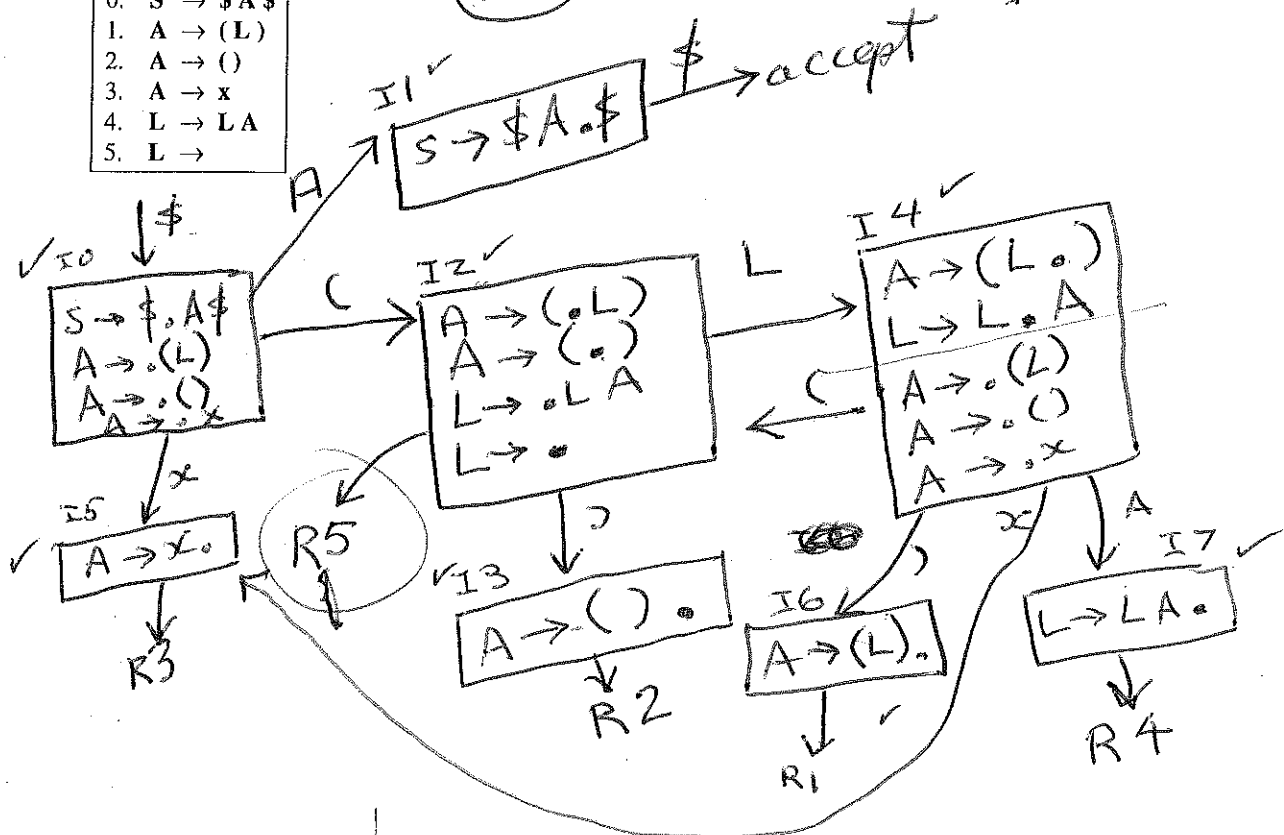 0. S → $ A $
1. A → ( L )
2. A → ( )
3. A → x
4. L → L A
5. L →
I1 ✓
S → $A.$
$
accept
A
$
✓ I0
S → $.A$
A → .(L)
A → .()
A → .x
(
I2 ✓
A → (.L)
A → (.)
L → .L A
L → .
L
I4 ✓
A → (L.)
L → L.A
A → .(L)
A → .()
A → .x
(
x
I5
✓ A → x.
R3
R5
)
✓ I3
A → ().
R2
)
I6
A → (L).
✓
R1
x
A
I7 ✓
L → LA.
R4